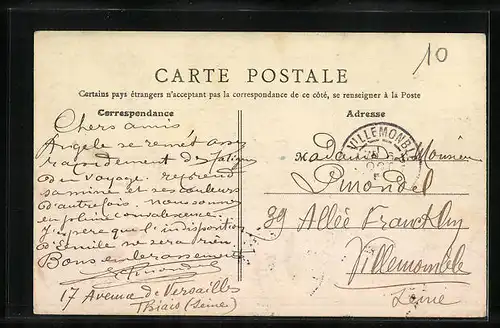 10
CARTE POSTALE
Certains pays étrangers n'acceptant pas la correspondance de ce côté, se renseigner à la Poste
Correspondance
Adresse
Chers amis
Angèle se remet assez
rapidement des fatigues
du voyage. reprend
sa mine et ses couleurs
d'autrefois. nous sommes
en pleine convalescence.
J'espère que l'indisposition
d'Emile ne sera rien
Bons embrassements
17 Avenue de Versailles
Thiais (Seine)
VILLEMOMBLE
Madame & Monsieur
39 Allée Francklin
Villemomble
Seine